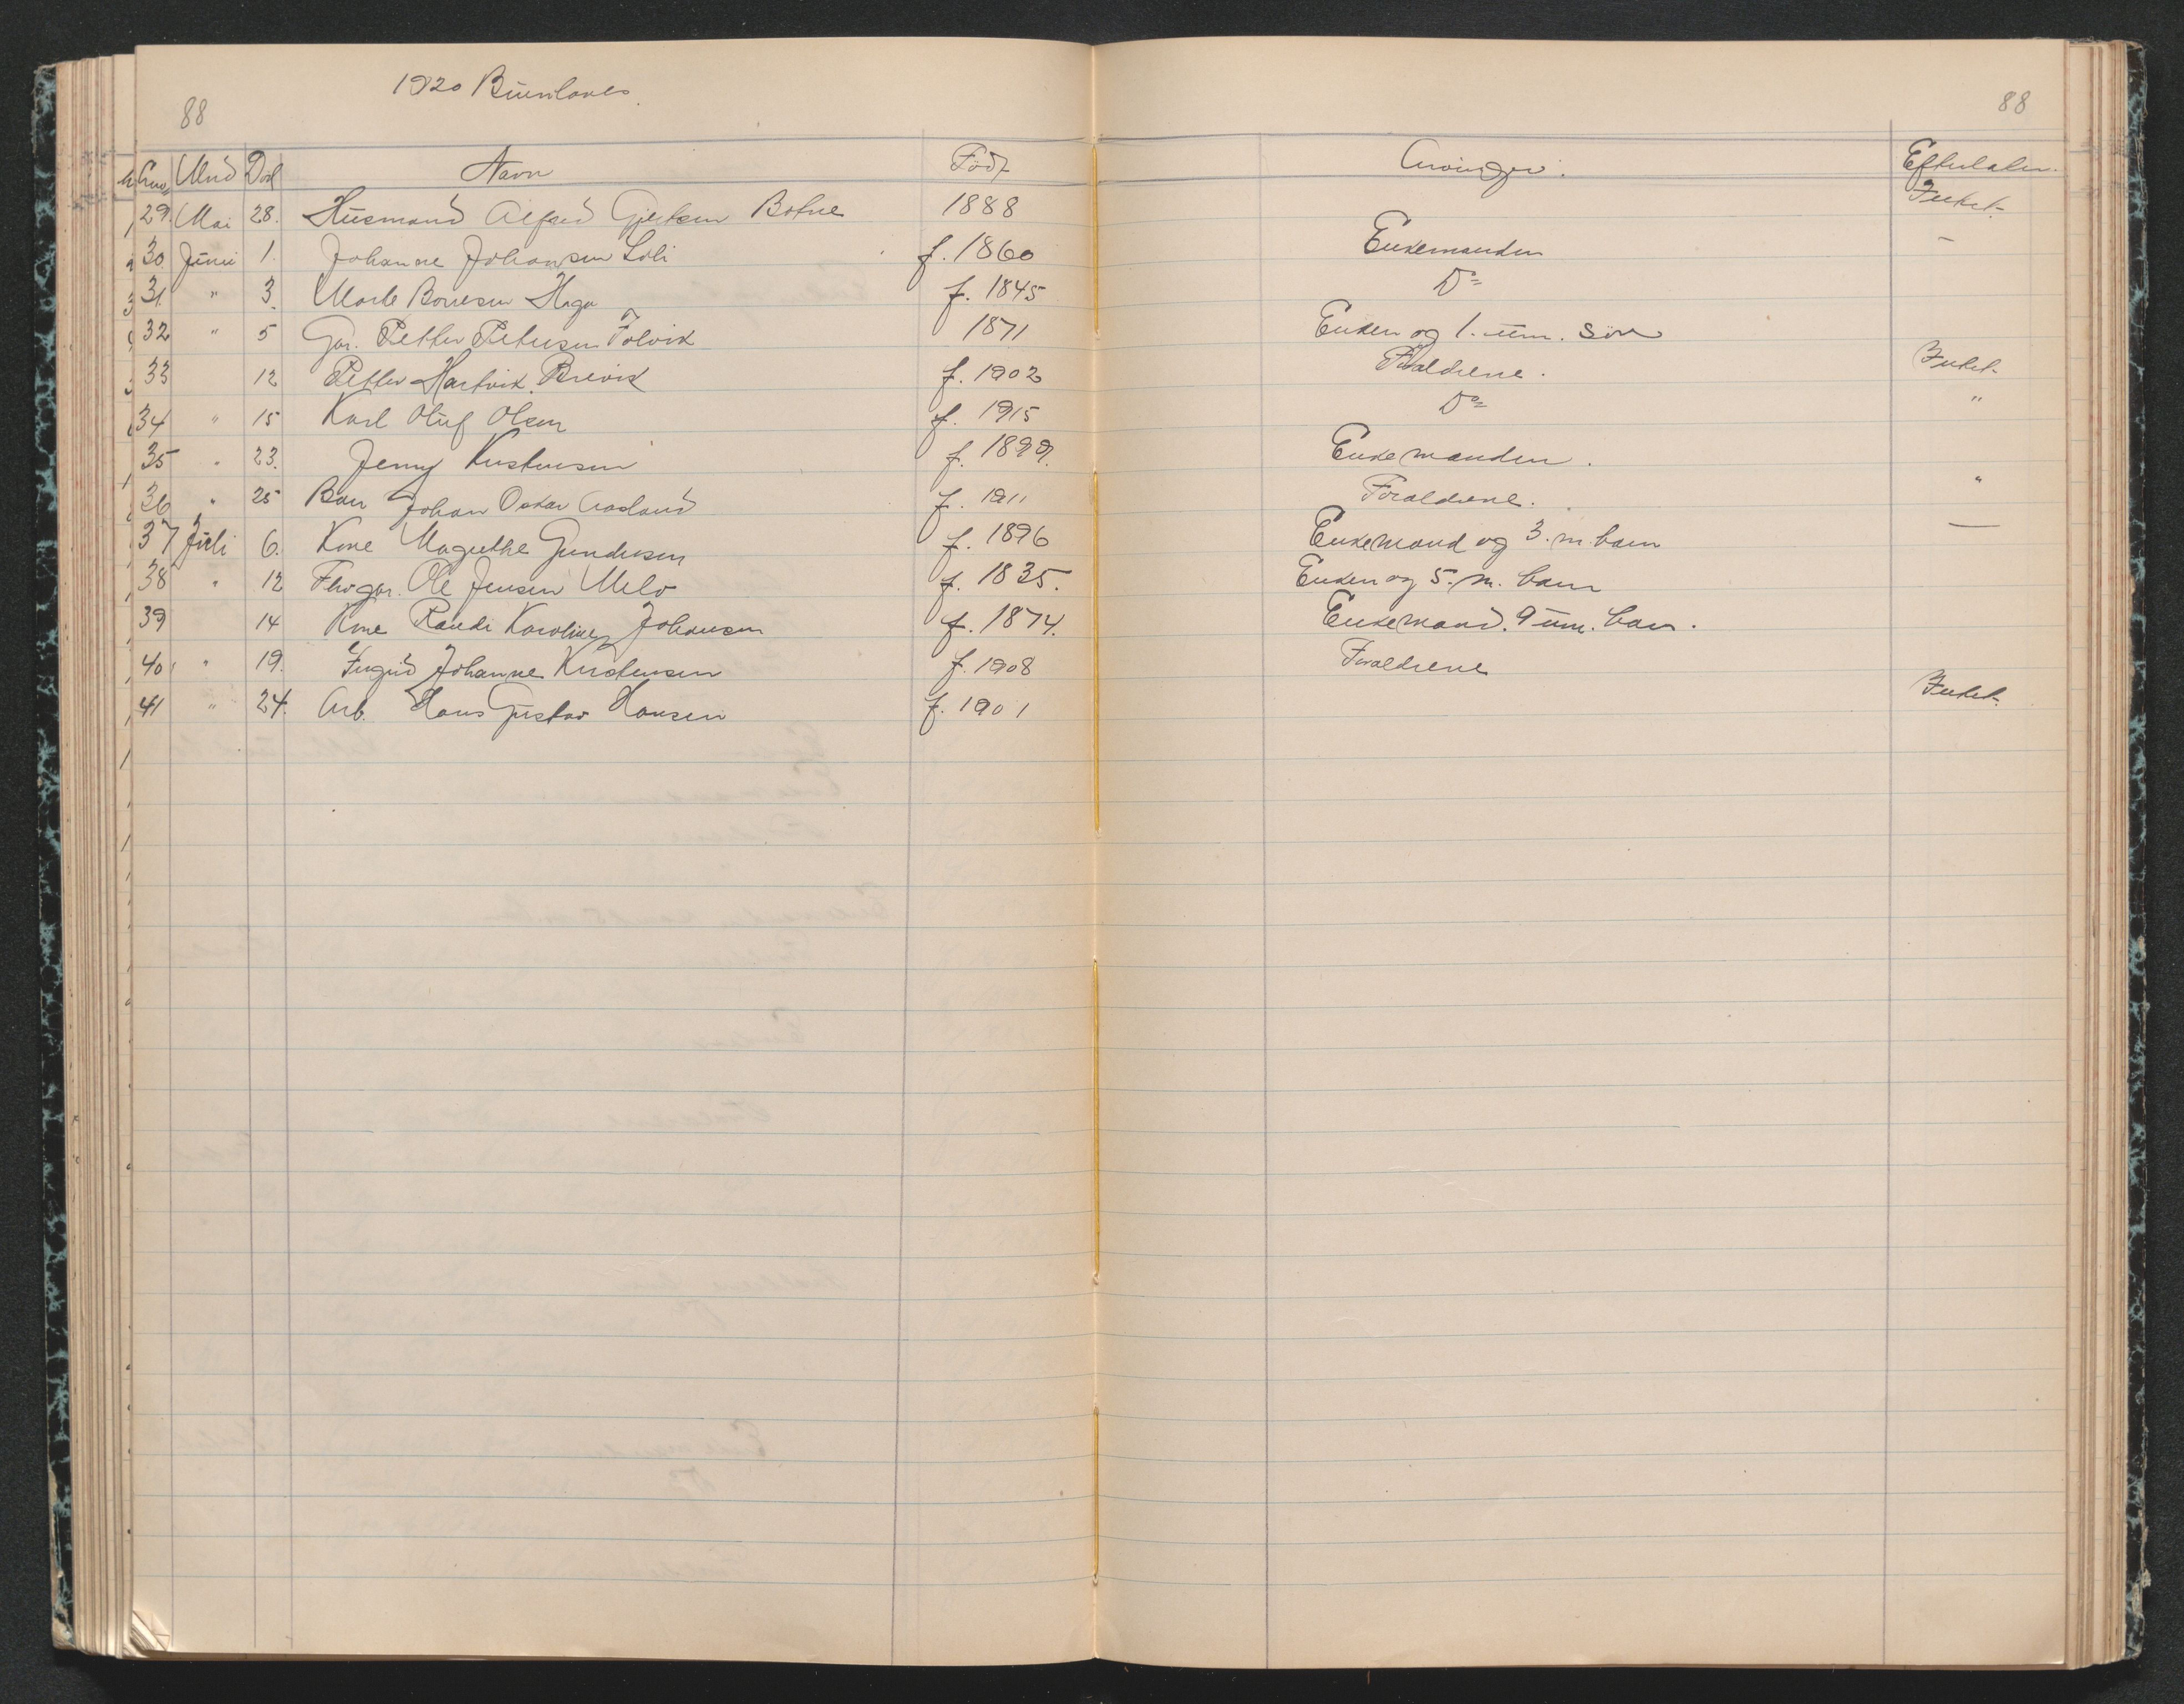 1920 Buerlaves
88
88
Mnd Død Navn Født Arvinger. Efterlader.
29. Mai 28. Husmand Alfred Gjertsen Botne 1888 Intet.
30 Juni 1. Johanne Johansen Loli f. 1860 Enkemanden —
31. " 3. Marte Borresen Haga f. 1845 Do
32 " 5 Gar. Petter Petersen Tolvik 1871 Enken og 1. um. søn
33 12 Petter Hartvik Brevik f. 1902 Foraldrene. Intet.
34 " 15 Karl Oluf Olsen f. 1915 Do "
35 " 23. Jenny Kristensen f. 1899. Enkemanden.
36 " 25 Barn Johan Oskar Aasland f. 1911 Foraldrene. "
37 Juli 6. Kone Magrethe Gundersen f. 1896 Enkemand og 3. m. barn —
38 " 12 Flvogar. Ole Jensen Melo f. 1835. Enken og 5. m. barn
39 14 Kone Randi Karoline Johansen f. 1874. Enkemand. 9 um. barn.
40 " 19. Ingrid Johanne Kristensen f. 1908 Foraldrene
41 " 24. Arb. Hans Gustav Hansen f. 1901 Intet.